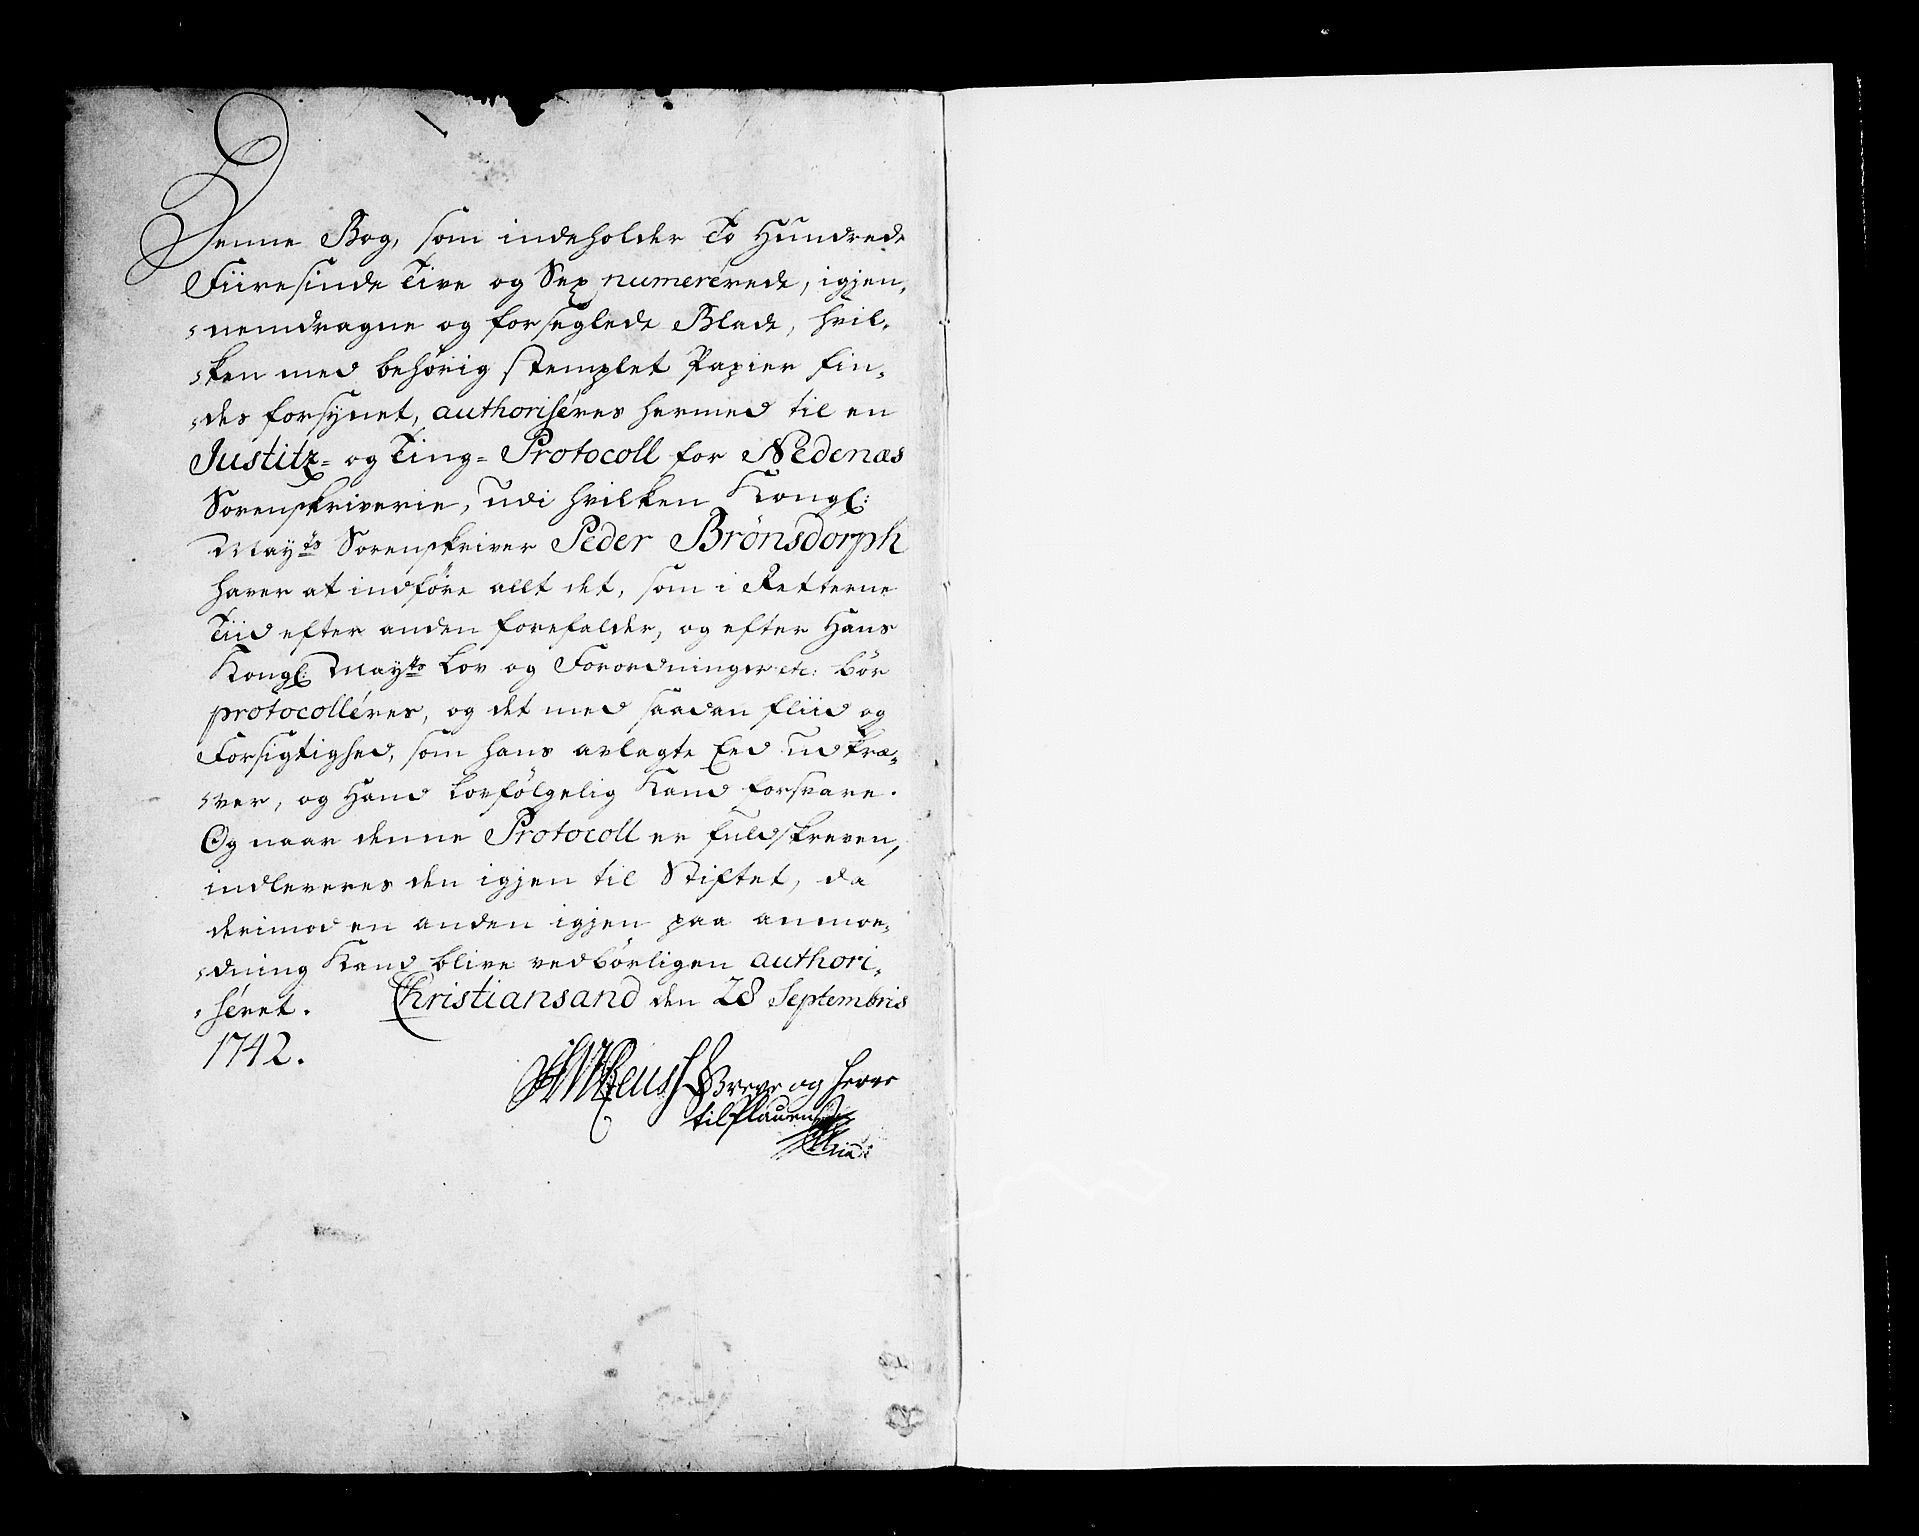 Denne Bog, som indeholder To Hundrede
Fiiresinde Tive og Sex numerérede, igien,
nemdragne og forseglede Blade, hvil,
ken med behörig stemplet Papier fin,
des forsynet, authoriséres hermed til en
Justitz- og Ting- Protocoll for Nedenæs
Sorenskriverie, udi hvilken Kongl:
Mayts Sorenskriver Peder Brönsdorph
haver at indföre allt det, som i Retterne
Tiid efter anden forefalder, og efter Hans
Kongl: Mayts Lov og Forordninger etc: bör
protocolléres, og det med saadan fliid og
Forsigtighed, som hans avlagte Eed udkræ,
ver, og Hand Lovfölgelig Kand forsvare.
Og naar denne Protocoll er fuldskreven,
indleveres den igjen til Stiftet, da
derimod en anden igjen paa anmoe,
dning Kand blive vedbörligen authori,
séret. Christiansand den 28 Septembris
1742.
Reuss Greve og Herre
til Plauen